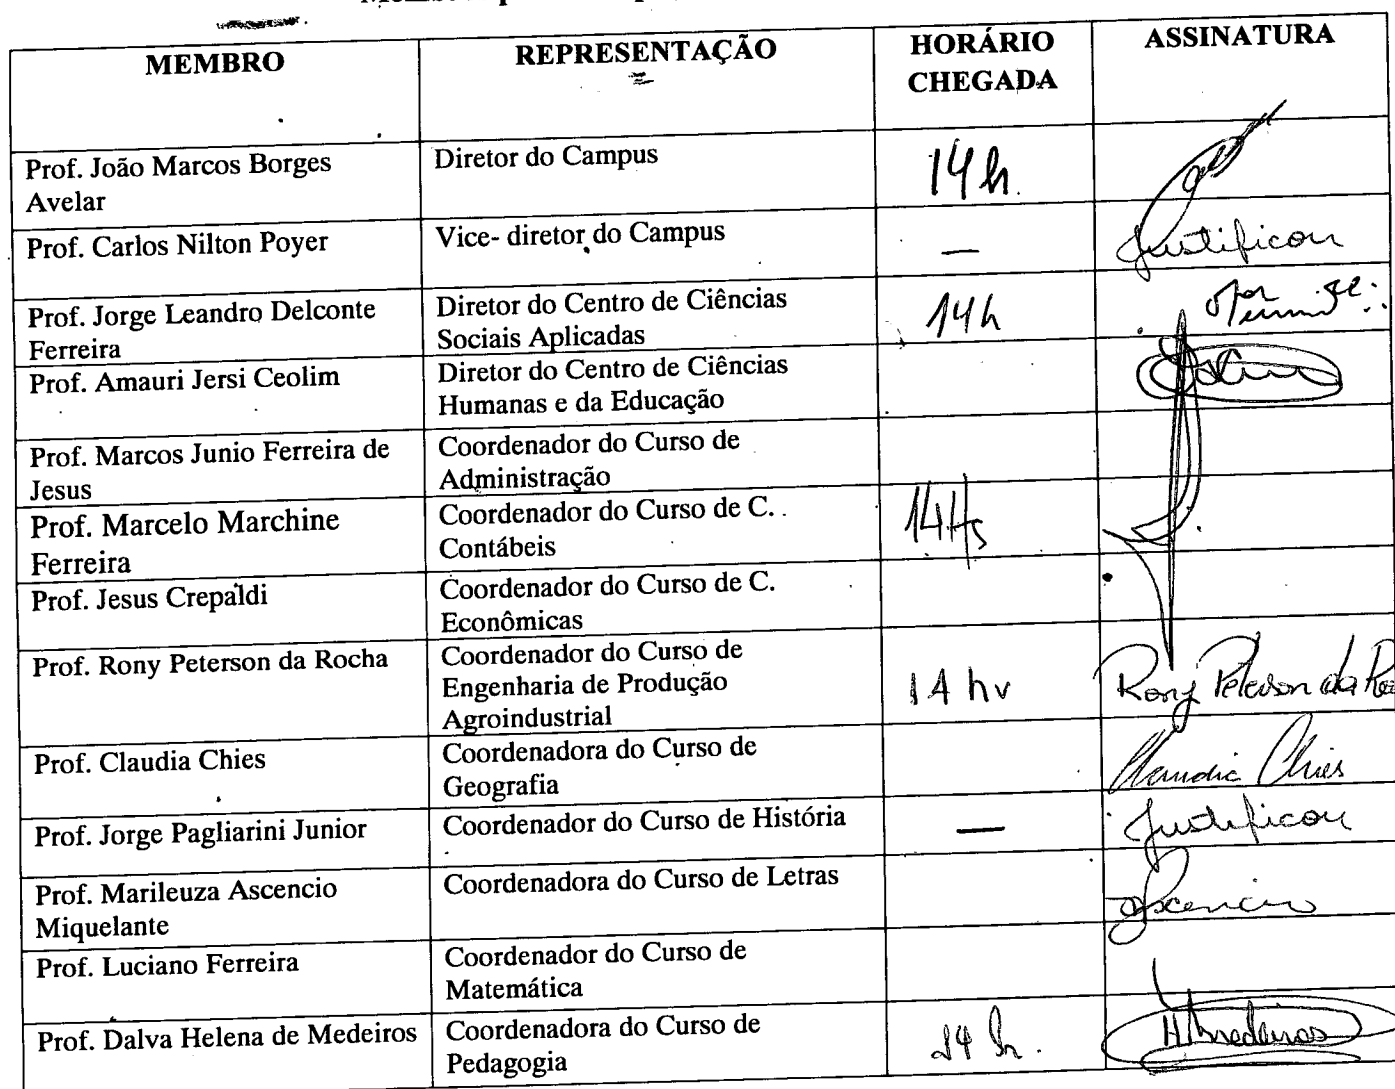 MEMBRO
REPRESENTAÇÃO
HORÁRIO
CHEGADA
ASSINATURA
Prof. João Marcos Borges
Avelar
Diretor do Campus
14h.
Prof. Carlos Nilton Poyer
Vice- diretor do Campus
—
Justificou
Prof. Jorge Leandro Delconte
Ferreira
Diretor do Centro de Ciências
Sociais Aplicadas
14h
Prof. Amauri Jersi Ceolim
Diretor do Centro de Ciências
Humanas e da Educação
Prof. Marcos Junio Ferreira de
Jesus
Coordenador do Curso de
Administração
Prof. Marcelo Marchine
Ferreira
Coordenador do Curso de C.
Contábeis
14Hs
Prof. Jesus Crepaldi
Coordenador do Curso de C.
Econômicas
Prof. Rony Peterson da Rocha
Coordenador do Curso de
Engenharia de Produção
Agroindustrial
14 hr
Rony Peterson da Roc
Prof. Claudia Chies
Coordenadora do Curso de
Geografia
Claudia Chies
Prof. Jorge Pagliarini Junior
Coordenador do Curso de História
—
Justificou
Prof. Marileuza Ascencio
Miquelante
Coordenadora do Curso de Letras
Ascencio
Prof. Luciano Ferreira
Coordenador do Curso de
Matemática
Prof. Dalva Helena de Medeiros
Coordenadora do Curso de
Pedagogia
14 h.
HMedeiros